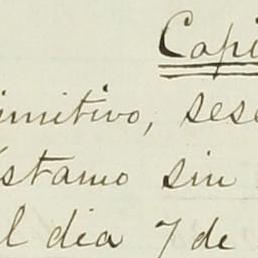 Capi
imitivo, sese
éstamo sin
l dia 7 de